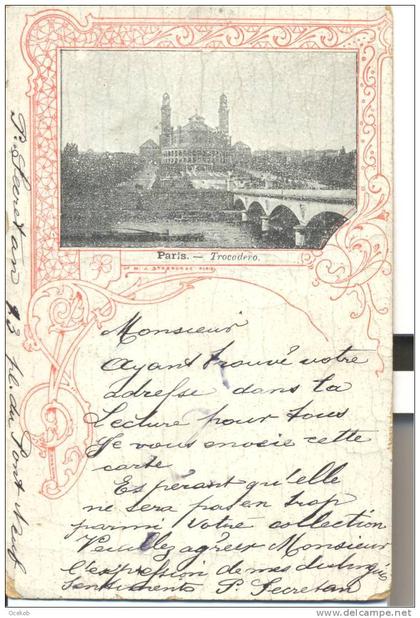 Paris. — Trocadero.
Monsieur
Ayant trouvé votre
adresse dans la
Lecture pour tous
Je vous envoie cette
carte
Espérant qu'elle
ne sera pas en trop
parmi votre collection
Veuillez agréer Monsieur
l'expression de mes distingués
Sentiments P. Secretan
P. Secretan 13 pl. du Pont Neuf
© Delcampe.net